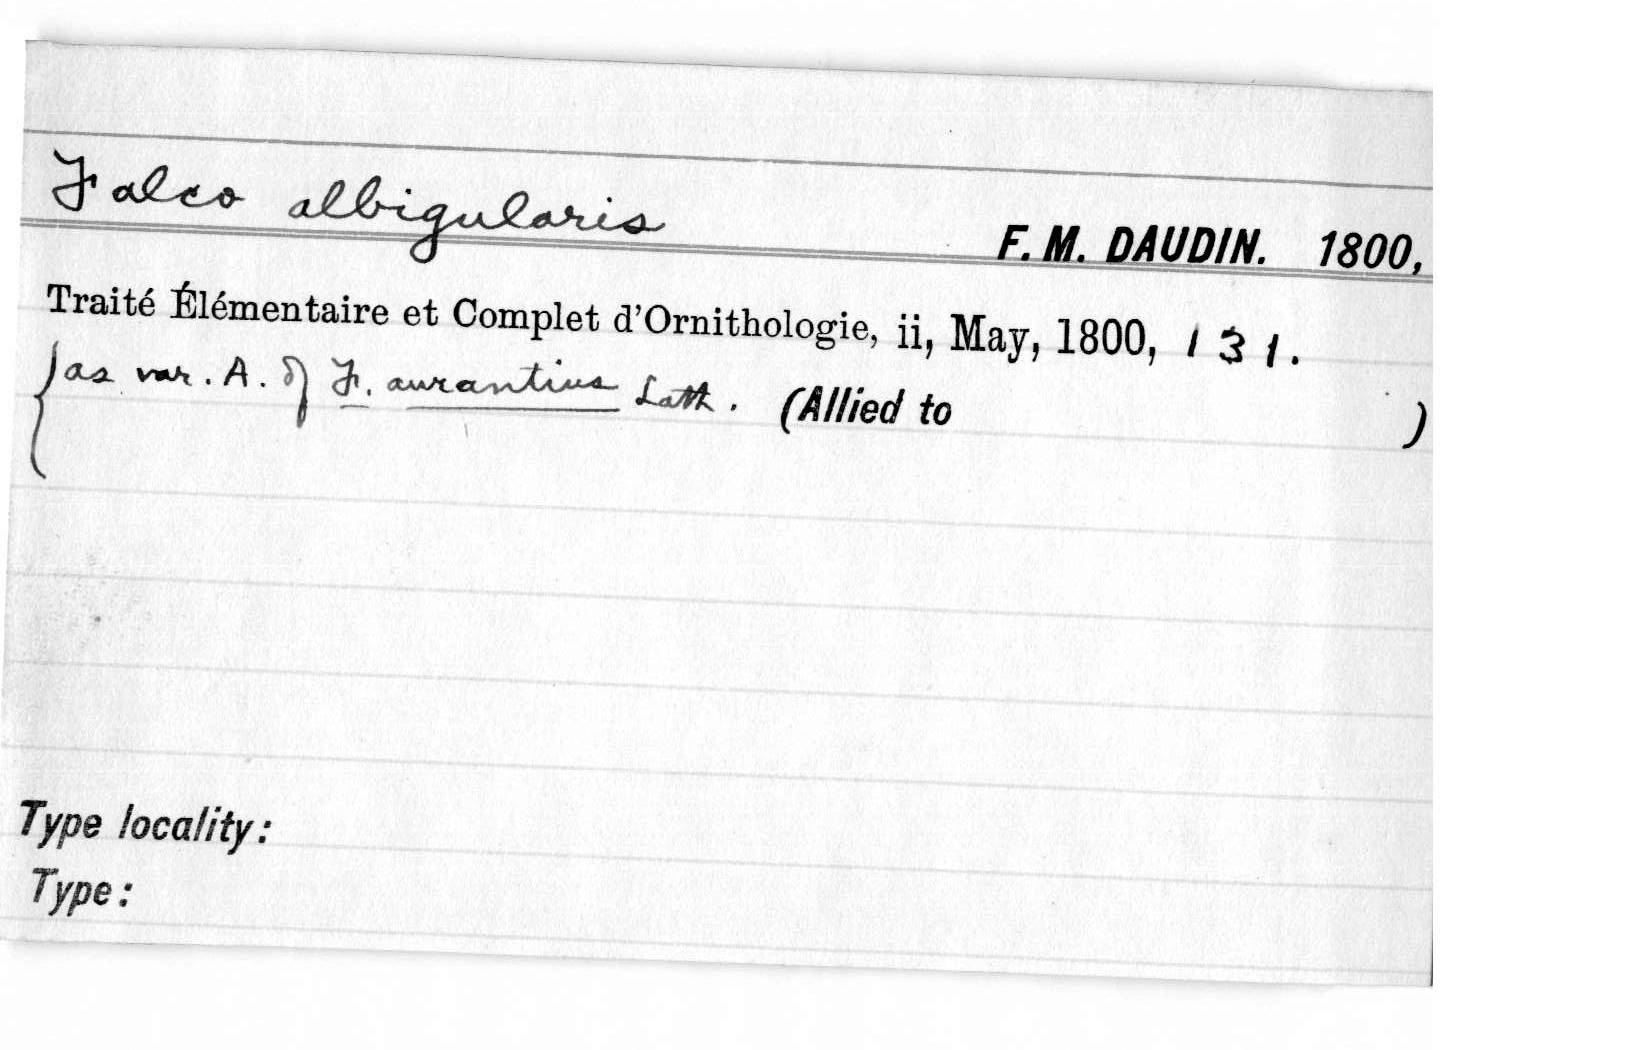 Falco albigularis F. M. DAUDIN. 1800,
Traité Élémentaire et Complet d'Ornithologie, ii, May, 1800, 131.
{as var. A. of F. aurantius Lath. (Allied to )
Type locality:
Type: